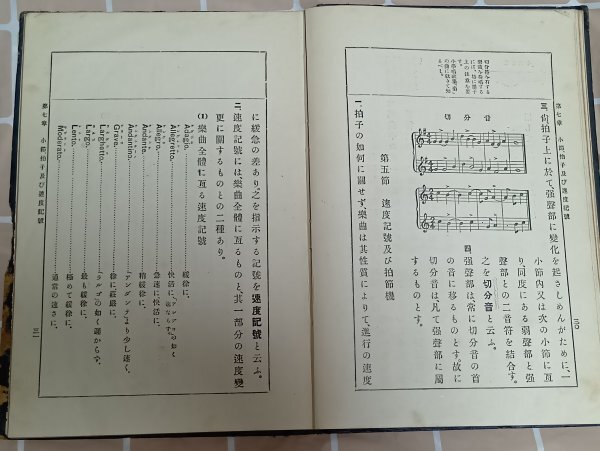 第七章　小節拍子及び速度記號
三〇
三、尙拍子上に於て强聲部に變化を起さしめんがために、一
小節內又は次の小節に亙
り、同度にある弱聲部と强
聲部との二音符を結合す。
之を切分音と云ふ。
四、强聲部は常に切分音の首
の音に移るものとす。故に
切分音は、凡て强聲部に屬
するものとす。
切分音
切分音を有する
第五節　速度記號及び拍節機
一、拍子の如何に關せず、樂曲は其性質によりて、進行の速度
に緩急の差あり、之を指示する記號を速度記號と云ふ。
二、速度記號には、樂曲全體に亙るものと、其一部分の速度變
更に關するものとの二種あり。
(1) 樂曲全體に亙る速度記號
Adagio. 緩徐に。
Allegretto. 快活に。
Allegro. 急速に快活に。
Andante. 稍緩徐に。
Andantino. 「アンダンテ」より少し速く。
Grave. 徐に莊嚴に。
Larghetto. 「ラルゴ」の如く緩からず。
Largo. 最も緩徐に。
Lento. 極めて緩徐に。
Moderato. 通常の速さに。
第七章　小節拍子及び速度記號
三一